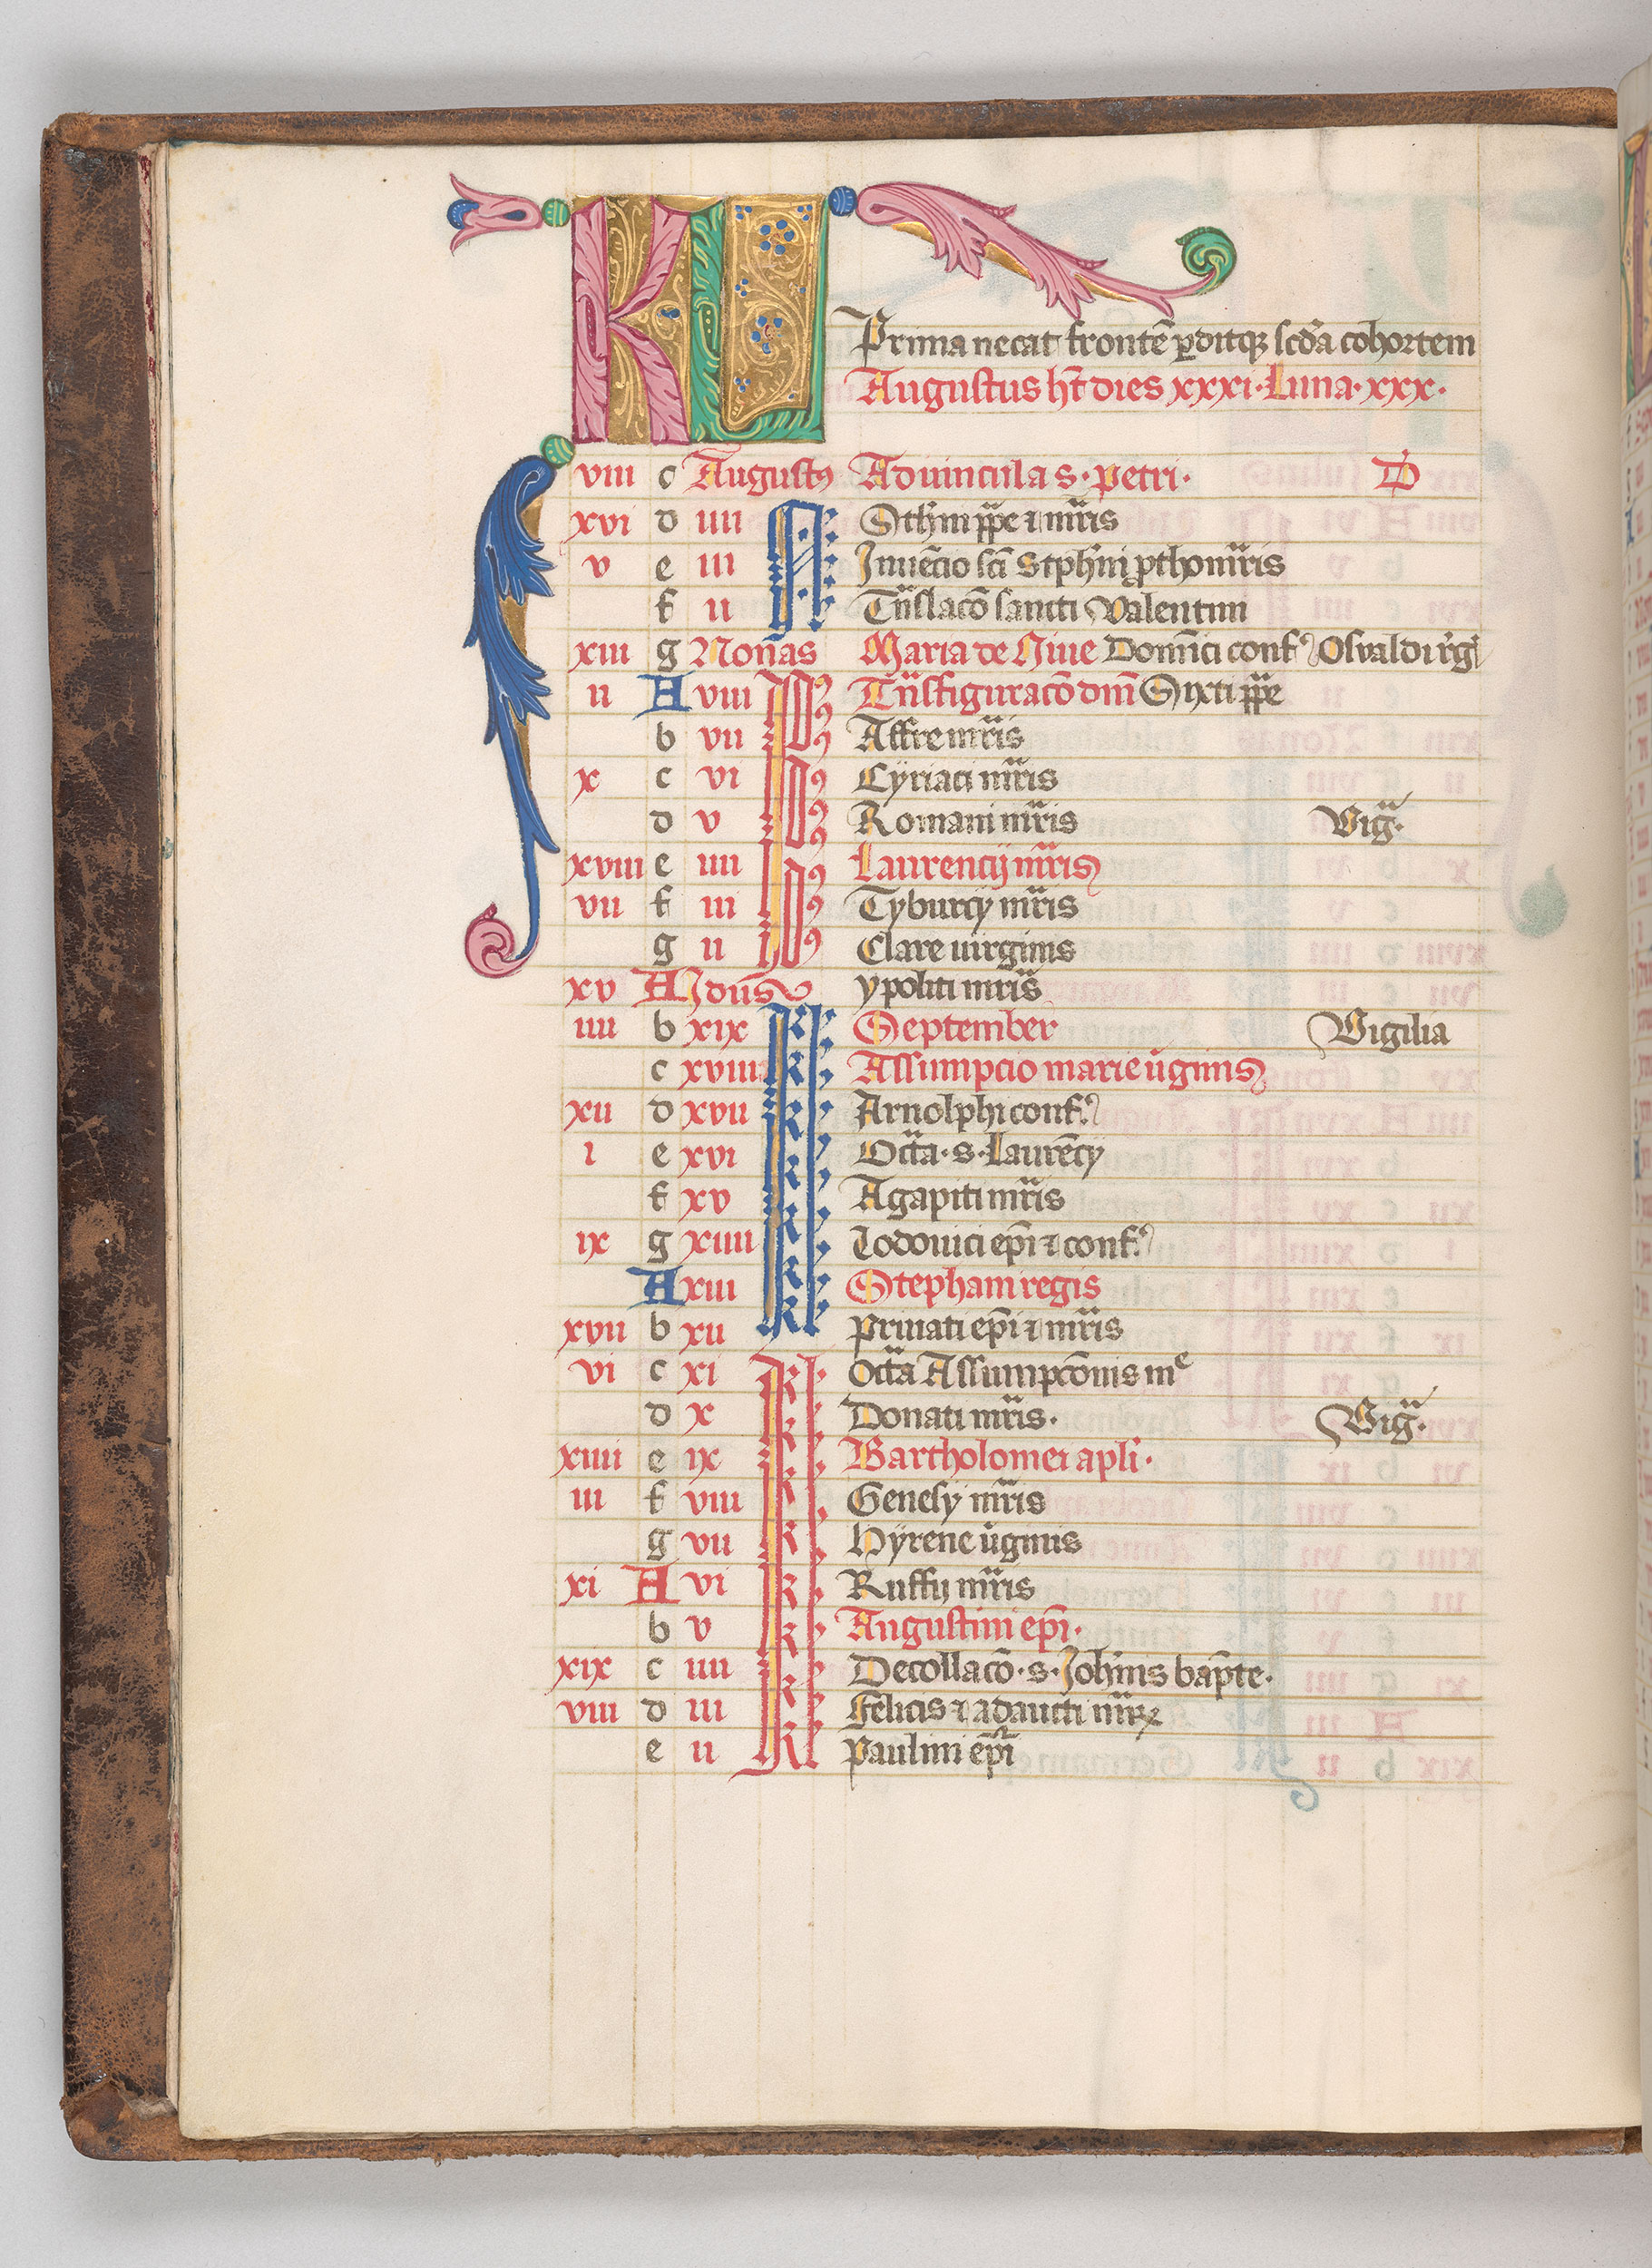 KL
Prima necat frontē ꝑditqꝫ scd̄a cohortem
Augustus ht̄ dies xxxi · Luna · xxx ·
viii c Augustꝰ Aduincula s · petri · D
xvi d iiii N̄ Sth̄ni ꝑpe ⁊ mr̄is
v e iii Inuēcio sci̅ Stph̄ni ꝓthomr̄is
f ii Tn̄slacō sancti Valentini
xiii g Nonas Maria de Niue Domīci conf Osvaldi rḡ
ii A viii Id Tn̄sfiguracō dn̄i Sixti ꝑpe
b vii Id Affre mr̄is
x c vi Id Cÿriaci mr̄is
d v Id Romani mr̄is Viḡ ·
xviii e iiii Id Laurencij mr̄is
vii f iii Id Tyburcÿ mr̄is
g ii Id Clare uirginis
xv A Idus ypoliti mr̄is
iiii b xix kl September Vigilia
c xviii kl Assumpcio marie ūginis
xii d xvii kl Arnolphi conf ·
i e xvi kl Octā · s · Laurēcÿ
f xv kl Agapiti mr̄is
ix g xiiii kl Lodouici ep̄i ⁊ conf ·
A xiii kl Stephani regis
xvii b xii kl priuati ep̄i ⁊ mr̄is
vi c xi kl Octā Assumpcōnis mᵉ
d x kl Donati mr̄is · Viḡ ·
xiiii e ix kl Bartholomei apl̄i ·
iii f viii kl Genesÿ mr̄is
g vii kl Hÿrene ūginis
xi A vi kl Ruffij mr̄is
b v kl Augustini ep̄i ·
xix c iiii kl Decollacō · s · Joh̄nis bap̄te ·
viii d iii kl Felicis ⁊ adaucti mr̄ꝝ
e ii kl paulini ep̄i